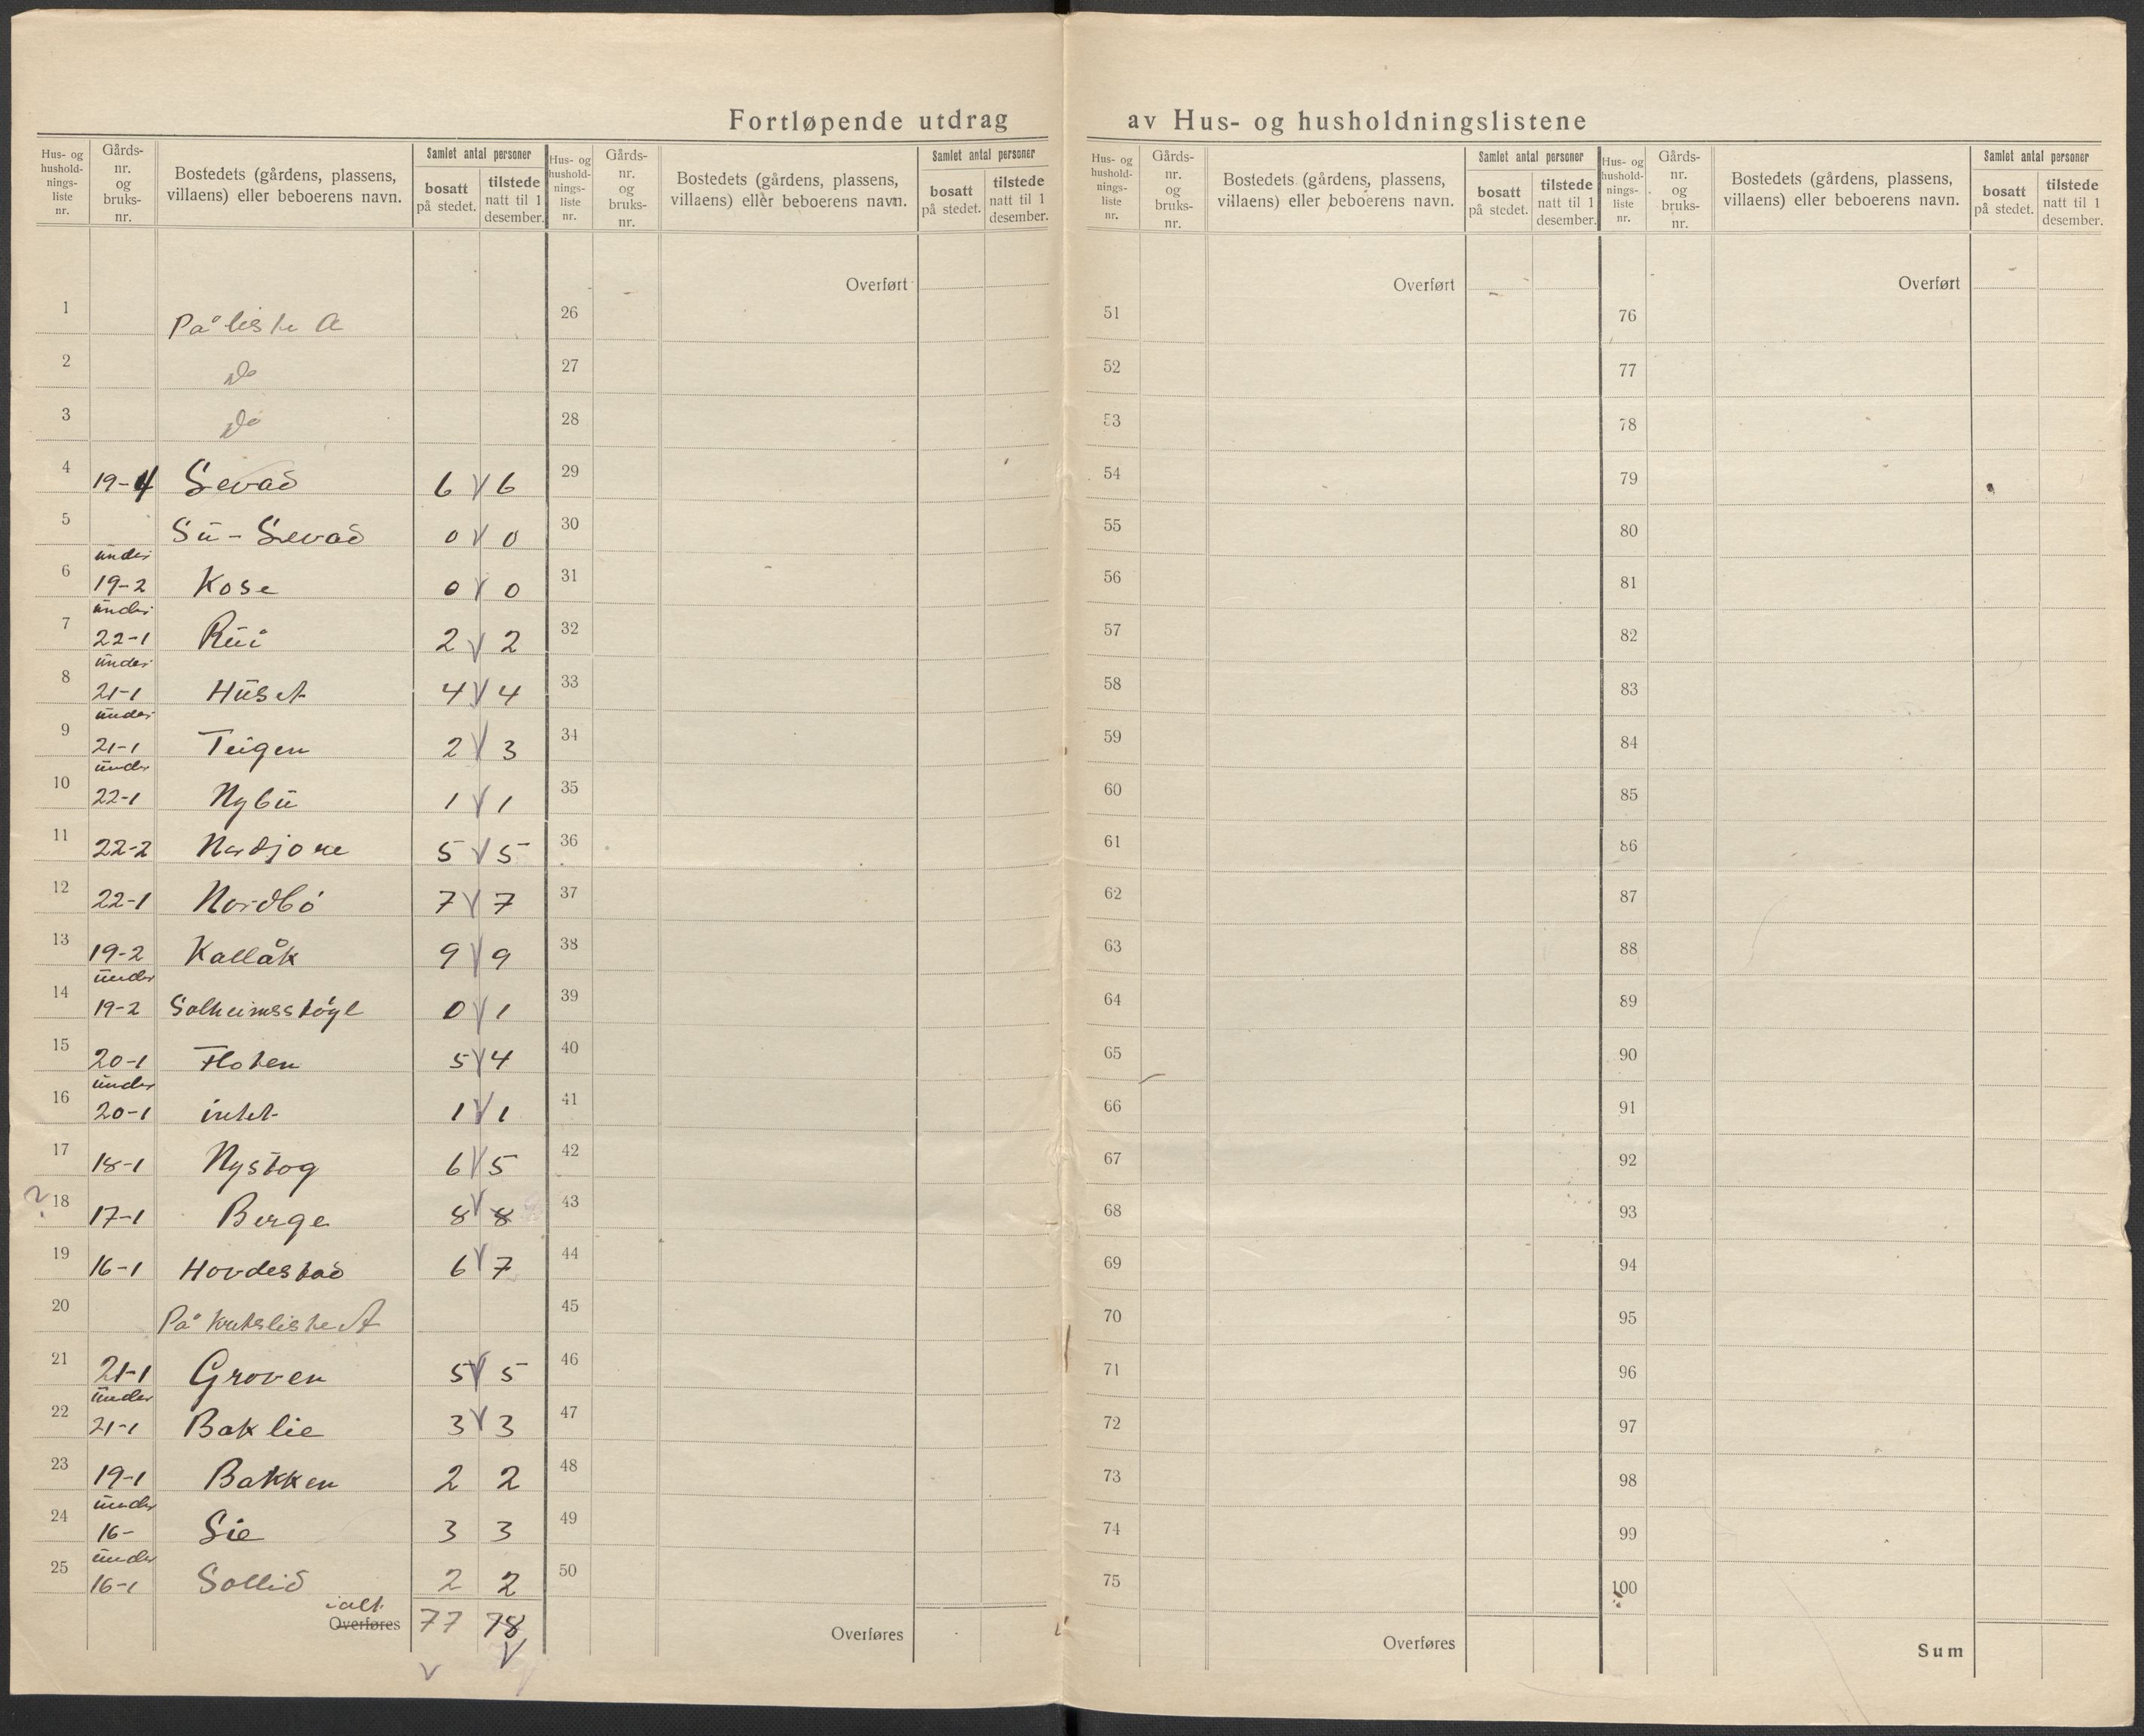 Fortløpende utdrag av Hus- og husholdningslistene
Hus- og hushold-nings-liste nr. | Gårds-nr. og bruks-nr. | Bostedets (gårdens, plassens, villaens) eller beboerens navn. | Samlet antal personer | bosatt på stedet. | tilstede natt til 1 desember.
Hus- og hushold-nings-liste nr. | Gårds-nr. og bruks-nr. | Bostedets (gårdens, plassens, villaens) eller beboerens navn. | Samlet antal personer | bosatt på stedet. | tilstede natt til 1 desember.
Hus- og hushold-nings-liste nr. | Gårds-nr. og bruks-nr. | Bostedets (gårdens, plassens, villaens) eller beboerens navn. | Samlet antal personer | bosatt på stedet. | tilstede natt til 1 desember.
Hus- og hushold-nings-liste nr. | Gårds-nr. og bruks-nr. | Bostedets (gårdens, plassens, villaens) eller beboerens navn. | Samlet antal personer | bosatt på stedet. | tilstede natt til 1 desember.
1 På liste A
2 Do
3 Do
4 19-4 Sevad 6 V 6
5 Su - Sevad 0 V 0
6 under 19-2 Kose 0 V 0
7 under 22-1 Rui 2 V 2
8 under 21-1 Huset 4 V 4
9 under 21-1 Teigen 2 V 3
10 under 22-1 Nybu 1 V 1
11 22-2 Nordjore 5 V 5
12 22-1 Nordbö 7 V 7
13 19-2 Kallåk 9 V 9
14 under 19-2 Solheimsstøyl 0 V 1
15 20-1 Floten 5 V 4
16 under 20-1 intet 1 V 1
17 18-1 Nystog 6 V 5
? 18 17-1 Berge 8 V 8
19 16-1 Hovdestad 6 V 7
20 På liste A
21 21-1 Groven 5 V 5
22 under 21-1 Baklie 3 V 3
23 19-1 Bakken 2 2
24 under 16- Lie 3 3
25 under 16-1 Sollid 2 2
ialt
Overføres 77 78
V V
Overført
26
27
28
29
30
31
32
33
34
35
36
37
38
39
40
41
42
43
44
45
46
47
48
49
50
Overføres
Overført
51
52
53
54
55
56
57
58
59
60
61
62
63
64
65
66
67
68
69
70
71
72
73
74
75
Overføres
Overført
76
77
78
79
80
81
82
83
84
85
86
87
88
89
90
91
92
93
94
95
96
97
98
99
100
Sum